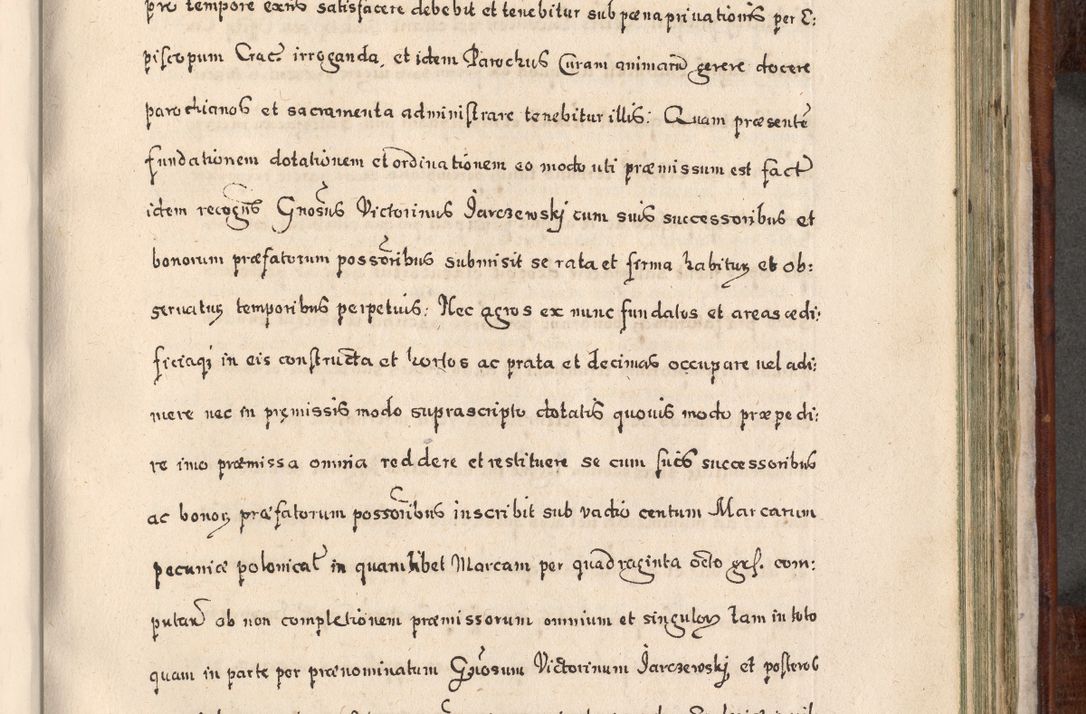 pro tempore exns satisfacere debebit et tenebitur sub pœna privationis per E:
piscopum Crac. irroganda, et idem Parochus Curam animarũ gerere docere
parochianos et sacramenta administrare tenebitur illis: Quam præsentẽ
fundationem dotationem et ordinationem eo modo uti præmissum est factũ
idem recogns Gnosus Victorinus Jarczewskj cum suis successoribus et
bonorum præfatorum possoribus submisit se rata et firma habitur. et ob:
servatur. temporibus perpetuis: Nec agros ex nunc fundatos et areas ædi:
ficiaq; in eis constructa et hortos ac prata et decimas occupare vel adi:
mere nec in pręmissis modo suprascripto dotatis quovis modo præpedi:
re imo præmissa omnia reddere et restituere se cum suis successoribus
ac bonor. præfatorum possoribus inscribit sub vadio centum Marcarum
pecuniæ polonical. in quamlibet Marcam per quadraginta octo grs. com:
putan. ob non completionem præmissorum omnium et singulor. tam in toto
quam in parte per prænominatum Gnosum Victorinum Jarczewskj et posteros